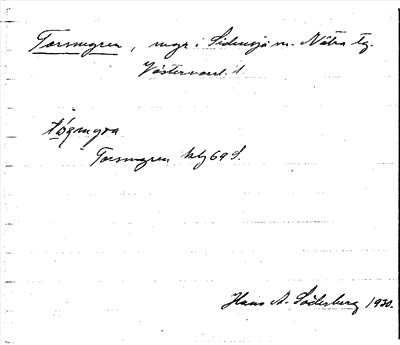 Torsmyren, myr i Sidensjö sn. Nätra tg.
Västernorrl. l.
tọ́smyra
Torsmyren kbl 69 S.
Hans A. Söderberg 1930.